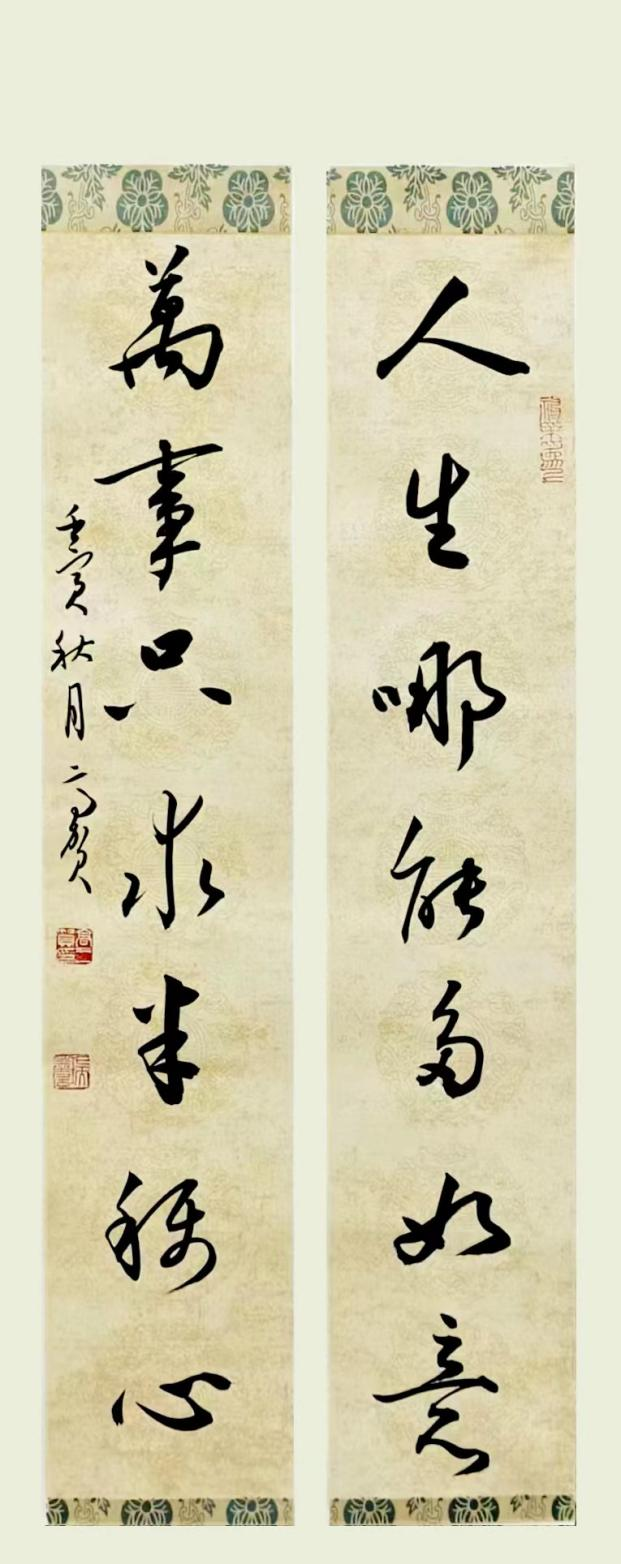 人生哪能多如意
萬事只求半稱心
壬寅秋月高賢